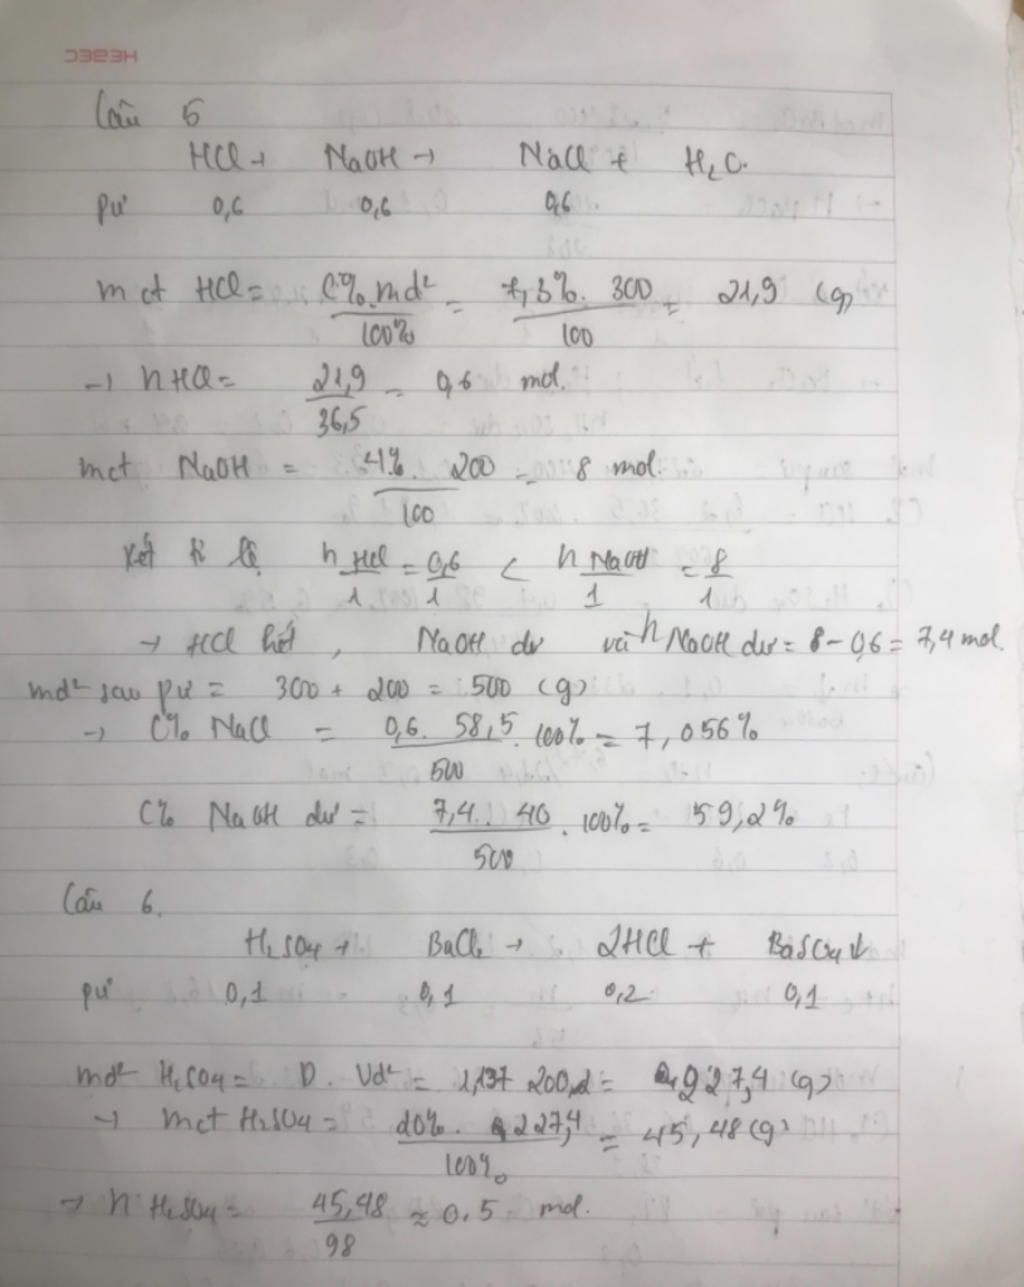 Câu 5
HCl + NaOH → NaCl + H₂O.
pư 0,6 0,6 0,6
mct HCl = C%.md² / 100% = 7,3%. 300 / 100 = 21,9 (g)
→ nHCl = 21,9 / 36,5 = 0,6 mol.
mct NaOH = 4%. 200 / 100 = 8 mol.
Xét tỉ lệ nHCl / 1 = 0,6 / 1 < nNaOH / 1 = 8 / 1
→ HCl hết, NaOH dư và nNaOH dư = 8 - 0,6 = 7,4 mol.
md² sau pư = 300 + 200 = 500 (g)
→ C% NaCl = 0,6. 58,5 / 500 . 100% = 7,056%
C% NaOH dư = 7,4. 40 / 500 . 100% = 59,2%
Câu 6.
H₂SO₄ + BaCl₂ → 2HCl + BaSO₄↓
pư 0,1 0,1 0,2 0,1
md² H₂SO₄ = D. Vd² = 1,137 200 = 227,4 (g)
→ mct H₂SO₄ = 20%. 227,4 / 100% = 45,48 (g)
→ nH₂SO₄ = 45,48 / 98 ≈ 0.5 mol.